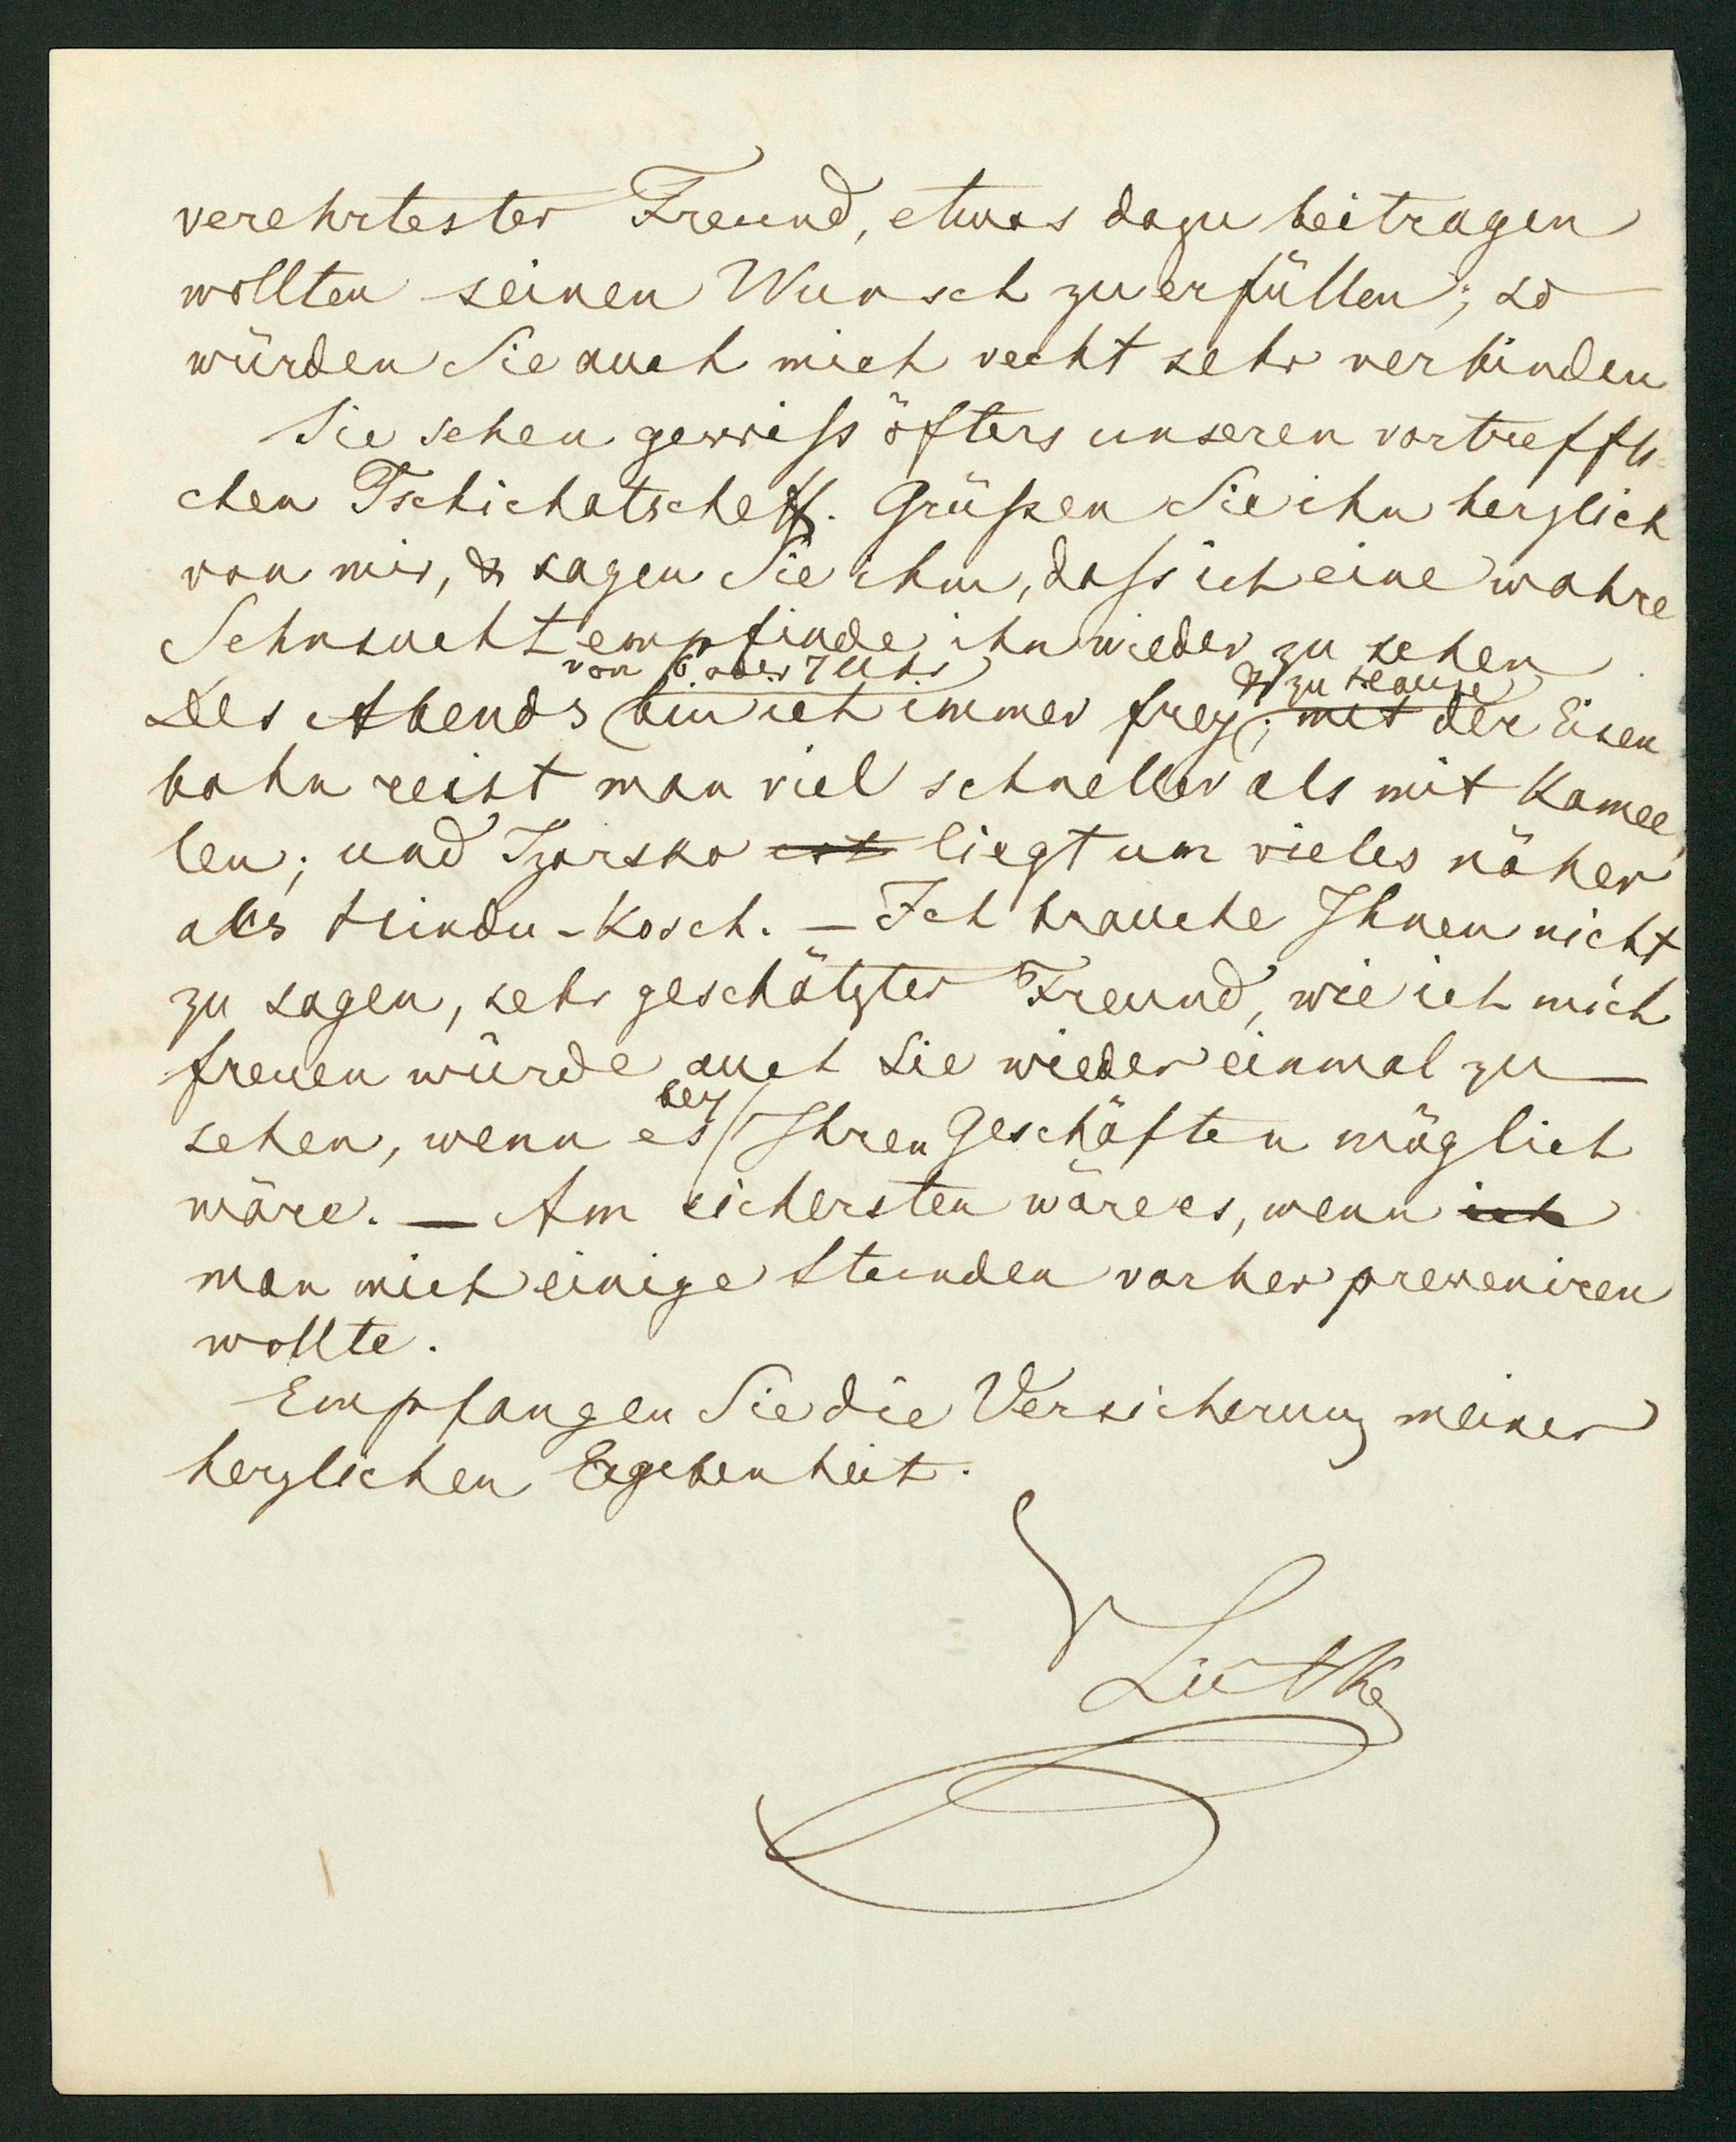 verehrtester Freund, etwas dazu beitragen
wollten seinen Wunsch zu erfüllen; so
würden Sie auch mich recht sehr verbinden
Sie sehen gewiss öfters unseren vortreffli-
chen Tschichatscheff. Grüssen Sie ihn herzlich
von mir, & sagen Sie ihm, dass ich eine wahre
Sehnsucht empfinde ihn wieder zu sehen
von 6 oder 7 Uhr & zu Hause
Des Abends bin ich immer frey; mit der Eisen
bahn reist man viel schneller als mit Kamee
len; und Tzarsko ist liegt um vieles näher
als Hindu-Kosch. — Ich brauche Ihnen nicht
zu sagen, sehr geschätzter Freund, wie ich mich
freuen würde auch Sie wieder einmal zu
bey
sehen, wenn es Ihren Geschäften möglich
wäre. — Am sichersten wäre es, wenn ich
man mich einige Stunden vorher preveniren
wollte.
Empfangen Sie die Versicherung meiner
herzlichen Ergebenheit.
Lütke